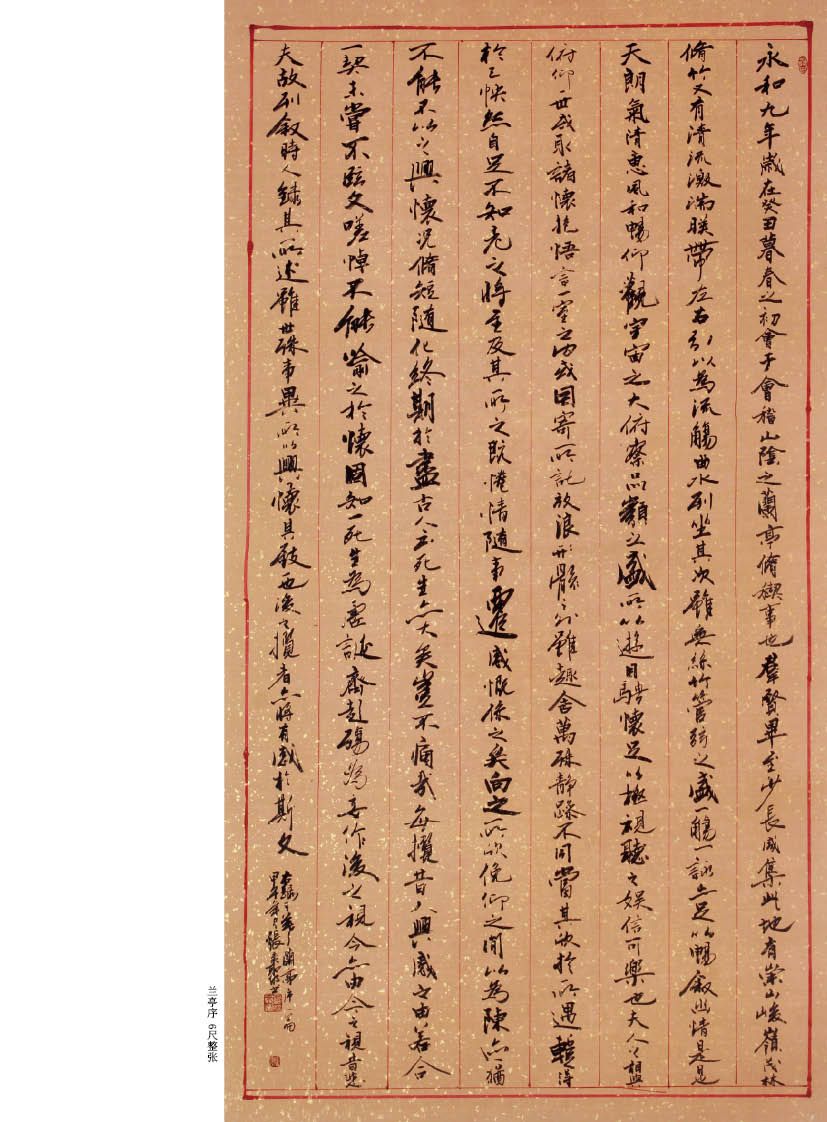 永和九年歲在癸丑暮春之初會于會稽山陰之蘭亭脩禊事也群賢畢至少長咸集此地有崇山峻嶺茂林
脩竹又有清流激湍暎帶左右引以為流觴曲水列坐其次雖無絲竹管弦之盛一觴一詠亦足以暢敘幽情是
天朗氣清惠風和暢仰觀宇宙之大俯察品類之盛所以遊目騁懷足以極視聽之娛信可樂也夫人之相與
俯仰一世或取諸懷抱悟言一室之內或因寄所託放浪形骸之外雖趣舍萬殊靜躁不同當其欣於所遇暫得
於己怏然自足不知老之將至及其所之既惓情隨事遷感慨係之矣向之所欣俛仰之間以為陳亦猶
不能不以之興懷況脩短隨化終期於盡古人云死生亦大矣豈不痛哉每攬昔人興感之由若合
一契未嘗不臨文嗟悼不能喻之於懷固知一死生為虛誕齊彭殤為妄作後之視今亦由今之視昔悲
夫故列敘時人錄其所述雖世殊事異所以興懷其致也後之攬者亦將有感於斯文
蘭亭序一篇
甲午年張
兰亭序 6尺整张